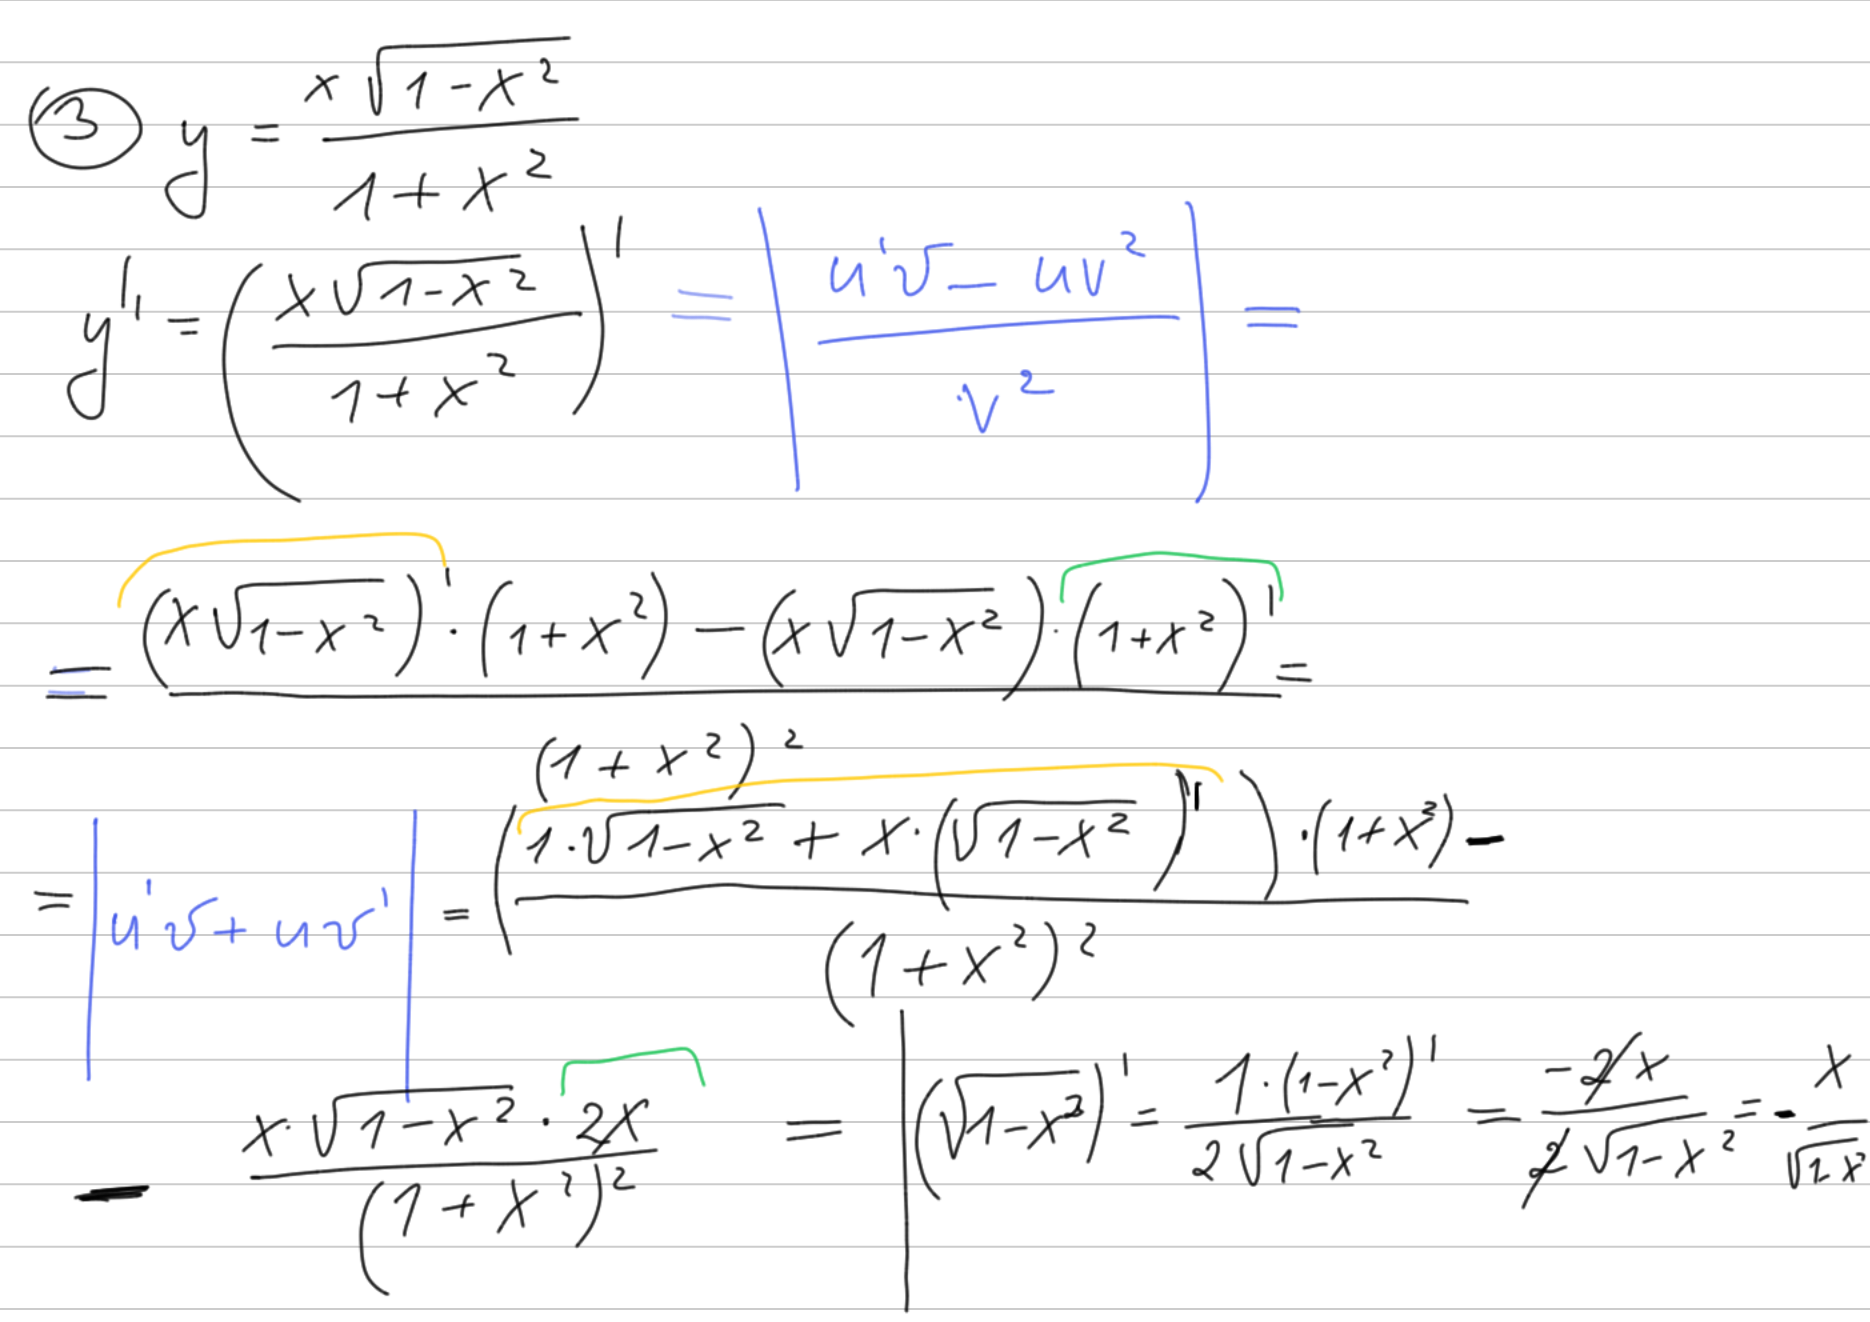 ③ y = x√(1-x²) / (1+x²)
y' = (x√(1-x²) / (1+x²))' = | (u'v - uv²) / v² | =
= ((x√(1-x²))' · (1+x²) - (x√(1-x²)) · (1+x²)') / (1+x²)² =
= | u'v + uv' | = ((1·√(1-x²) + x·(√(1-x²))') · (1+x²)) / (1+x²)² -
- (x·√(1-x²) · 2x) / (1+x²)² = | (√(1-x²))' = 1·(1-x²)' / (2√(1-x²)) = -2x / (2√(1-x²)) = - x / √(1-x²)